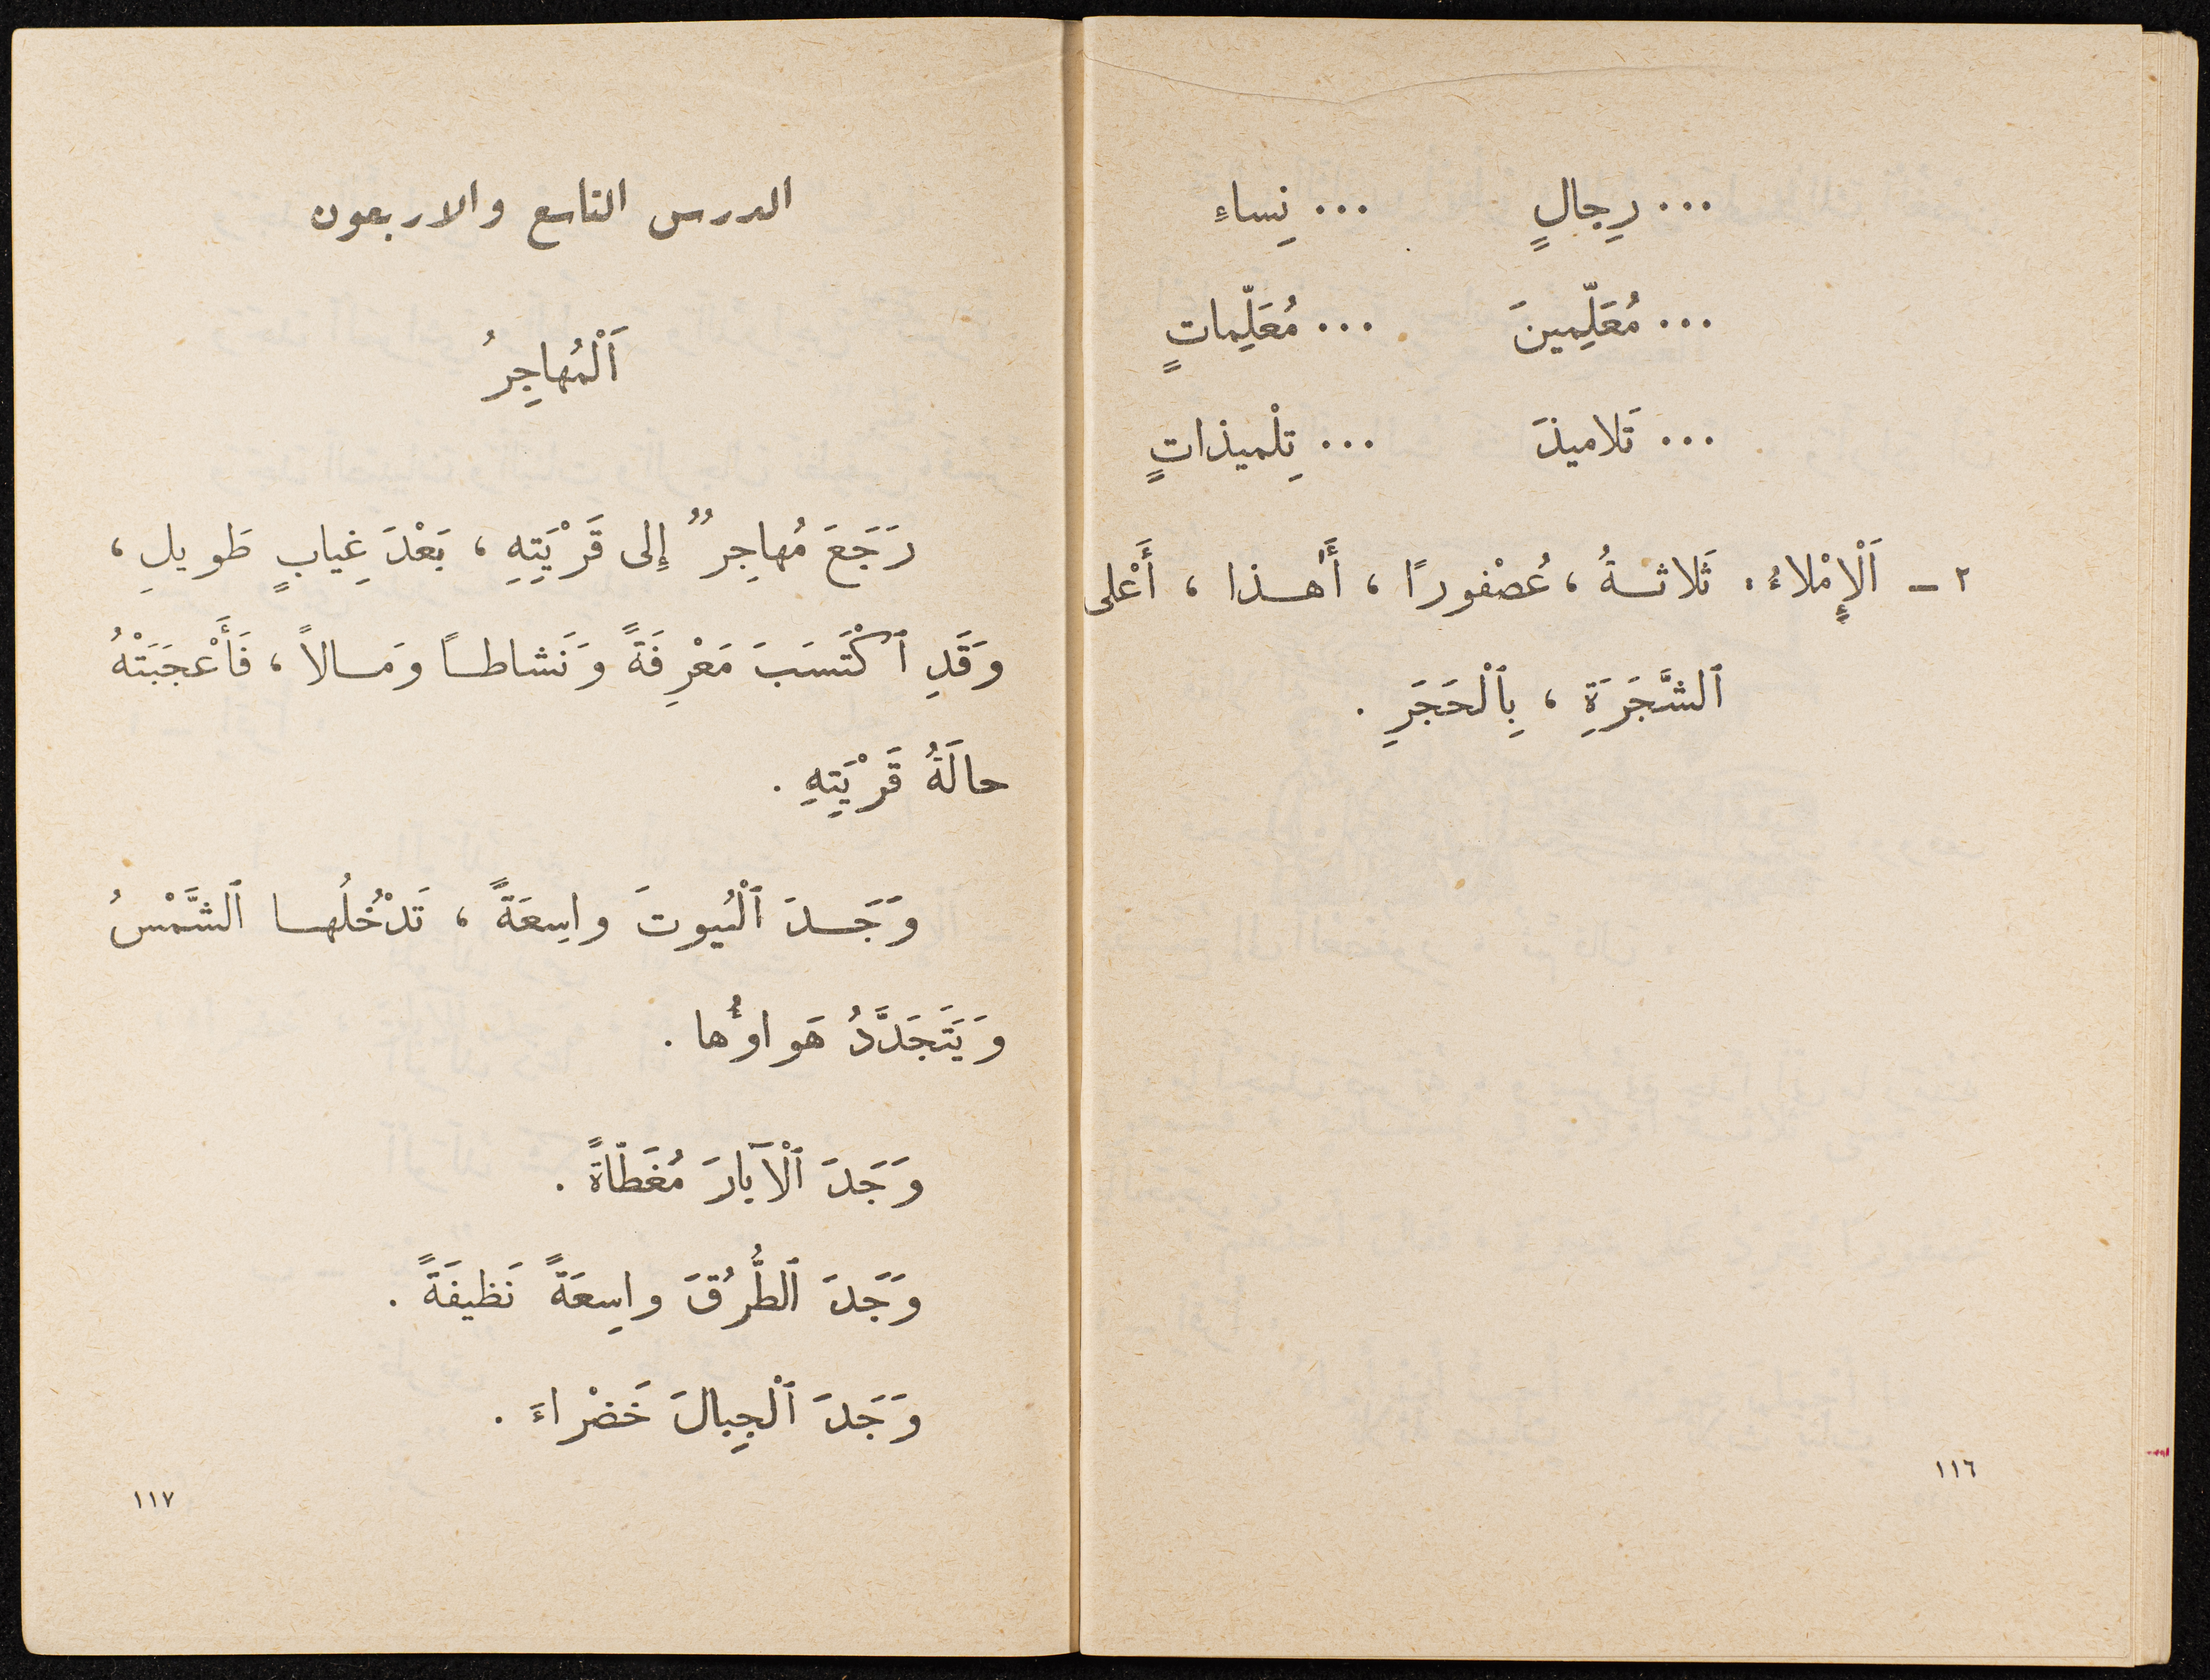 ... رِجالٍ ... نِساءٍ
... مُعَلِّمينَ ... مُعَلِّماتٍ
... تَلاميذَ ... تِلْميذاتٍ
٢ - اَلْإِمْلاءُ. ثَلاثـةُ ، عُصْفورًا ، أَهـذا ، أَعْلى
ٱلشَّجَرَةِ ، بِٱلْحَجَرِ .
١١٦
الدرس التاسع والاربعون
اَلْمُهاجِرُ
رَجَعَ مُهاجِرٌ إِلى قَرْيَتِهِ ، بَعْدَ غِيابٍ طَويلِ ،
وَقَدِ ٱكْتَسَبَ مَعْرِفَةً وَنَشاطـًا وَمـالاً ، فَأَعْجَبَتْهُ
حالَةُ قَرْيَتِهِ .
وَجَـدَ ٱلْبُيوتَ واسِعَةً ، تَدْخُلُهـا ٱلشَّمْسُ
وَيَتَجَدَّدُ هَواؤُها .
وَجَدَ ٱلْآبارَ مُغَطّاةً .
وَجَدَ ٱلطُّرُقَ واسِعَةً نَظيفَةً .
وَجَدَ ٱلْجِبالَ خَضْراءَ .
١١٧